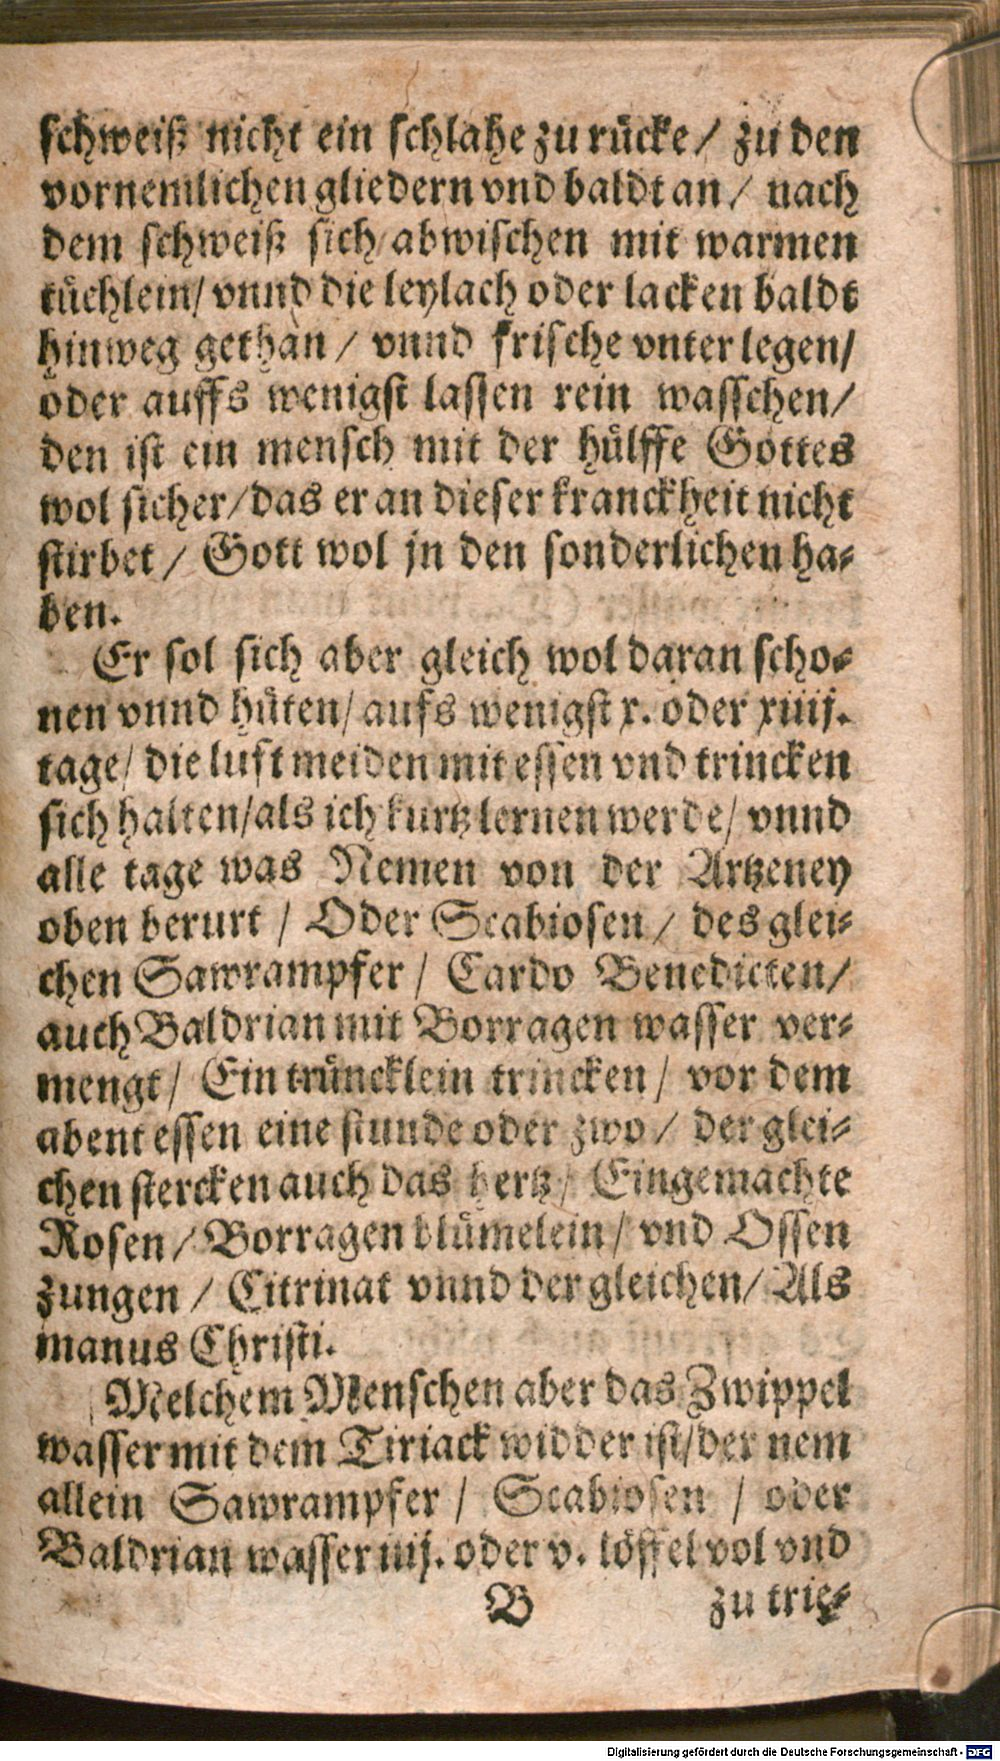 schweiß nicht ein schlahe zu rücke / zu den
vornemlichen gliedern vnd baldt an / nach
dem schweiß sich abwischen mit warmen
tüchlein / vnnd die leylach oder lacken baldt
hinweg gethan / vnnd frische vnter legen /
oder auffs wenigst lassen rein wasschen /
den ist ein mensch mit der hülffe Gottes
wol sicher / das er an dieser kranckheit nicht
stirbet / Gott wol jn den sonderlichen ha-
ben.
Er sol sich aber gleich wol daran scho-
nen vnnd hüten / aufs wenigst x. oder xiiij.
tage / die luft meiden mit essen vnd trincken
sich halten / als ich kurtz lernen werde / vnnd
alle tage was Nemen von der Artzeney
oben berurt / Oder Scabiosen / des glei-
chen Sawrampfer / Cardo Benedicten /
auch Baldrian mit Borragen wasser ver-
mengt / Ein trüncklein trincken / vor dem
abent essen eine stunde oder zwo / der glei-
chen stercken auch das hertz / Eingemachte
Rosen / Borragen blümelein / vnd Ossen
zungen / Citrinat vnnd der gleichen / Als
manus Christi.
Welchem Menschen aber das Zwippel
wasser mit dem Tiriack widder ist / der nem
allein Sawrampfer / Scabiosen / oder
Baldrian wasser iiij. oder v. löffel vol vnd
B zu trie-
Digitalisierung gefördert durch die Deutsche Forschungsgemeinschaft - DFG